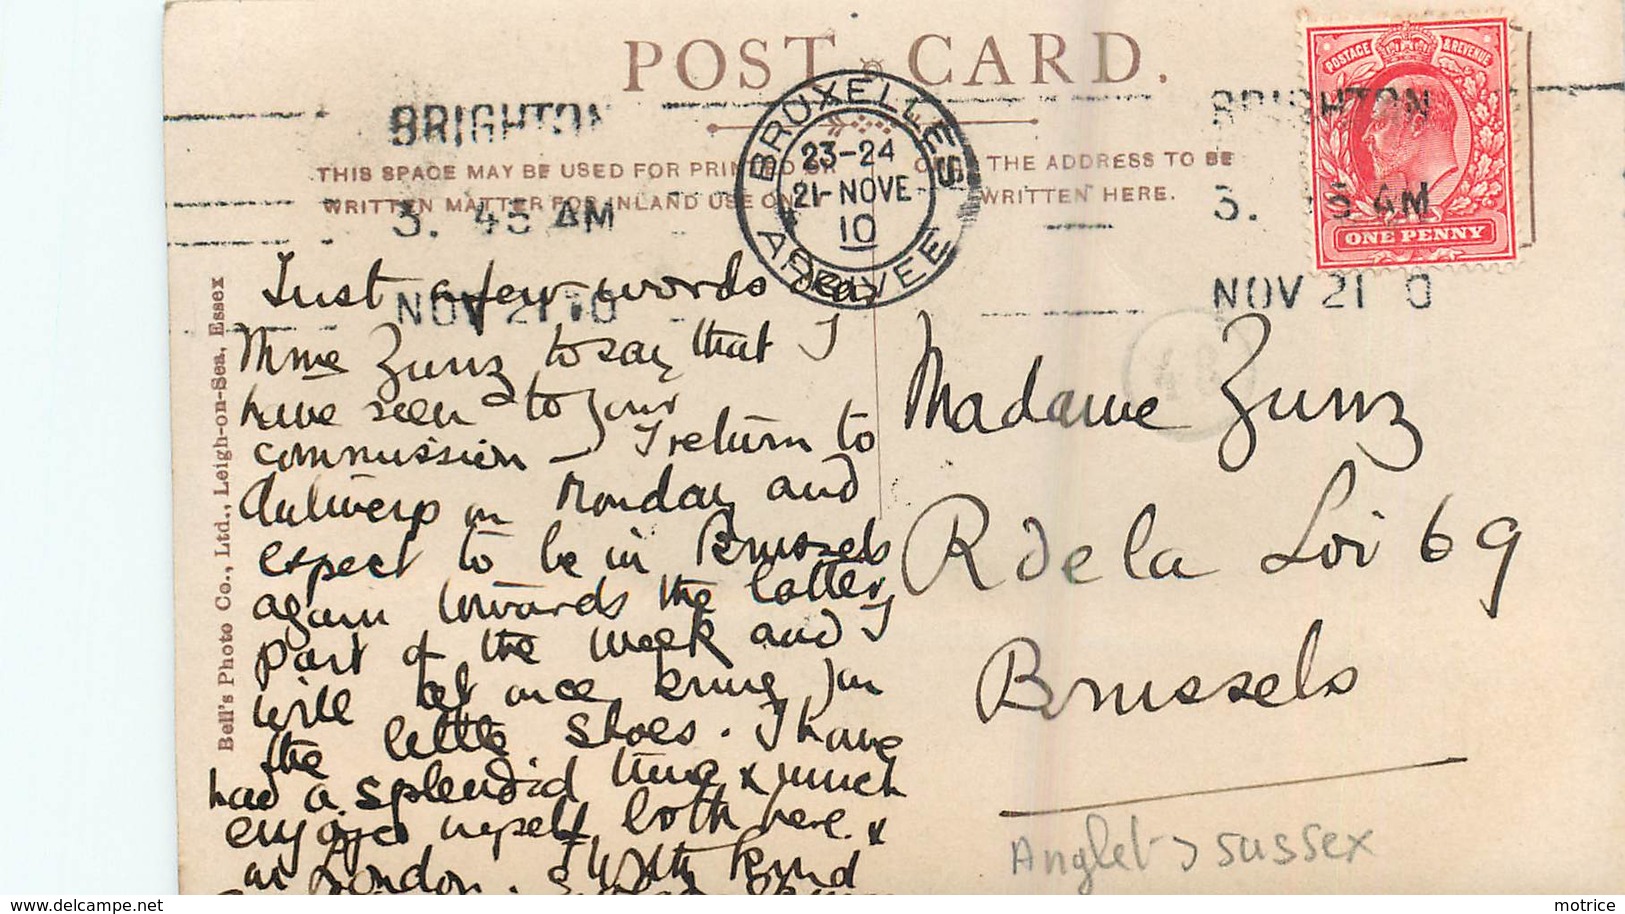 POST CARD.
BRIGHTON
BRIGHTON
THIS SPACE MAY BE USED FOR PRINTED OR
WRITTEN MATTER FOR INLAND USE ONLY
ONLY THE ADDRESS TO BE
WRITTEN HERE.
3. 45 AM
3. 45 AM
NOV 21 10
NOV 21 0
BRUXELLES
23-24
21-NOVE
10
ARRIVEE
POSTAGE & REVENUE
ONE PENNY
Bell's Photo Co., Ltd., Leigh-on-Sea, Essex
Just a few words dear
Mme Zunz to say that I
have seen to your
commission – I return to
Antwerp on Monday and
expect to be in Brussels
again towards the latter
part of the week and I
will at once bring you
the little shoes. I have
had a splendid time & much
enjoyed myself both here &
in London. With kind
Madame Zunz
R de la Loi 69
Brussels
Anglet > Sussex
www.delcampe.net
motrice